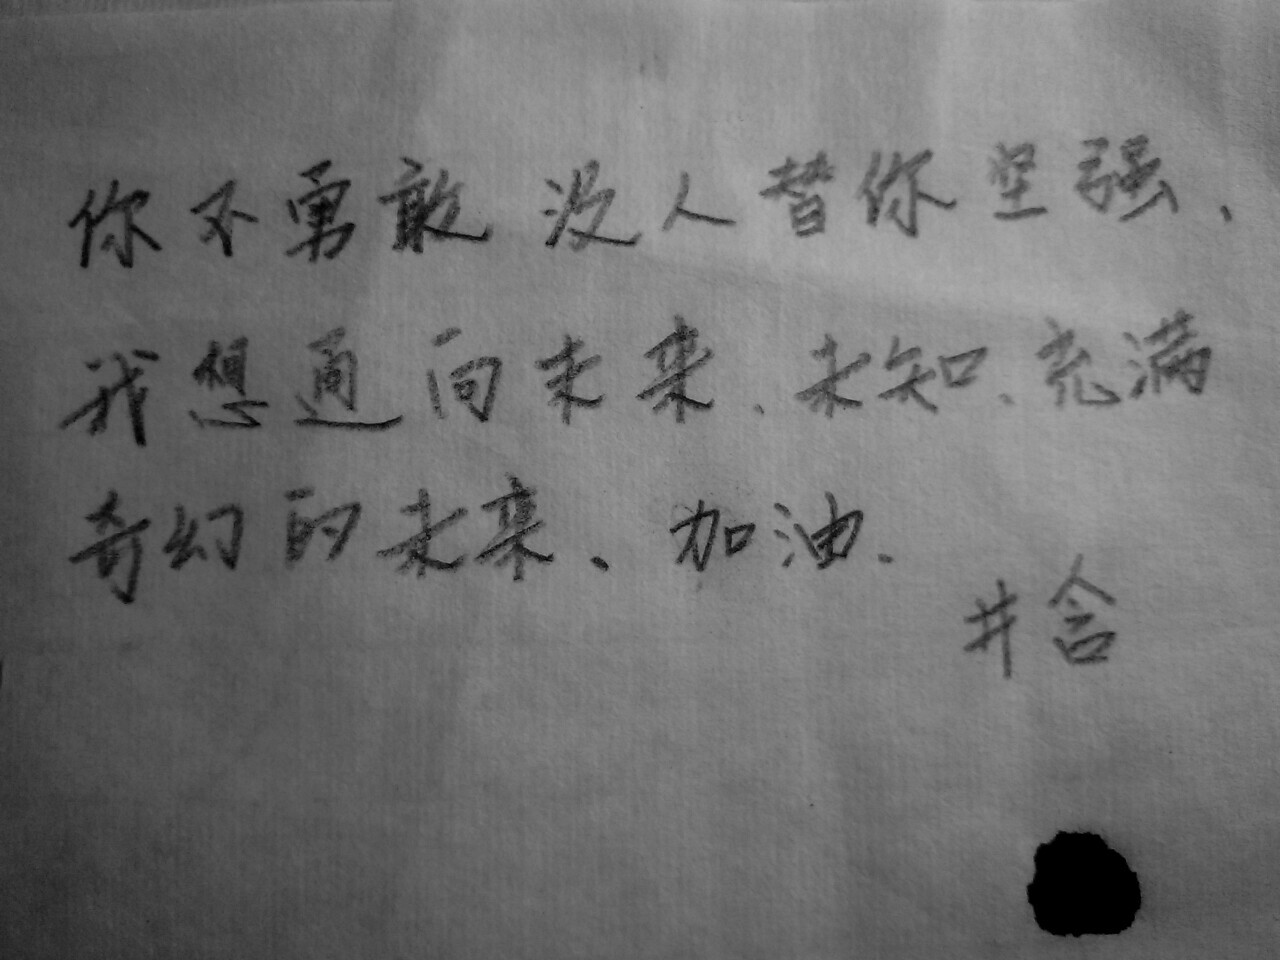 你不勇敢 没人替你坚强、
我想通向未来、未知、充满
奇幻的未来、加油.
井含